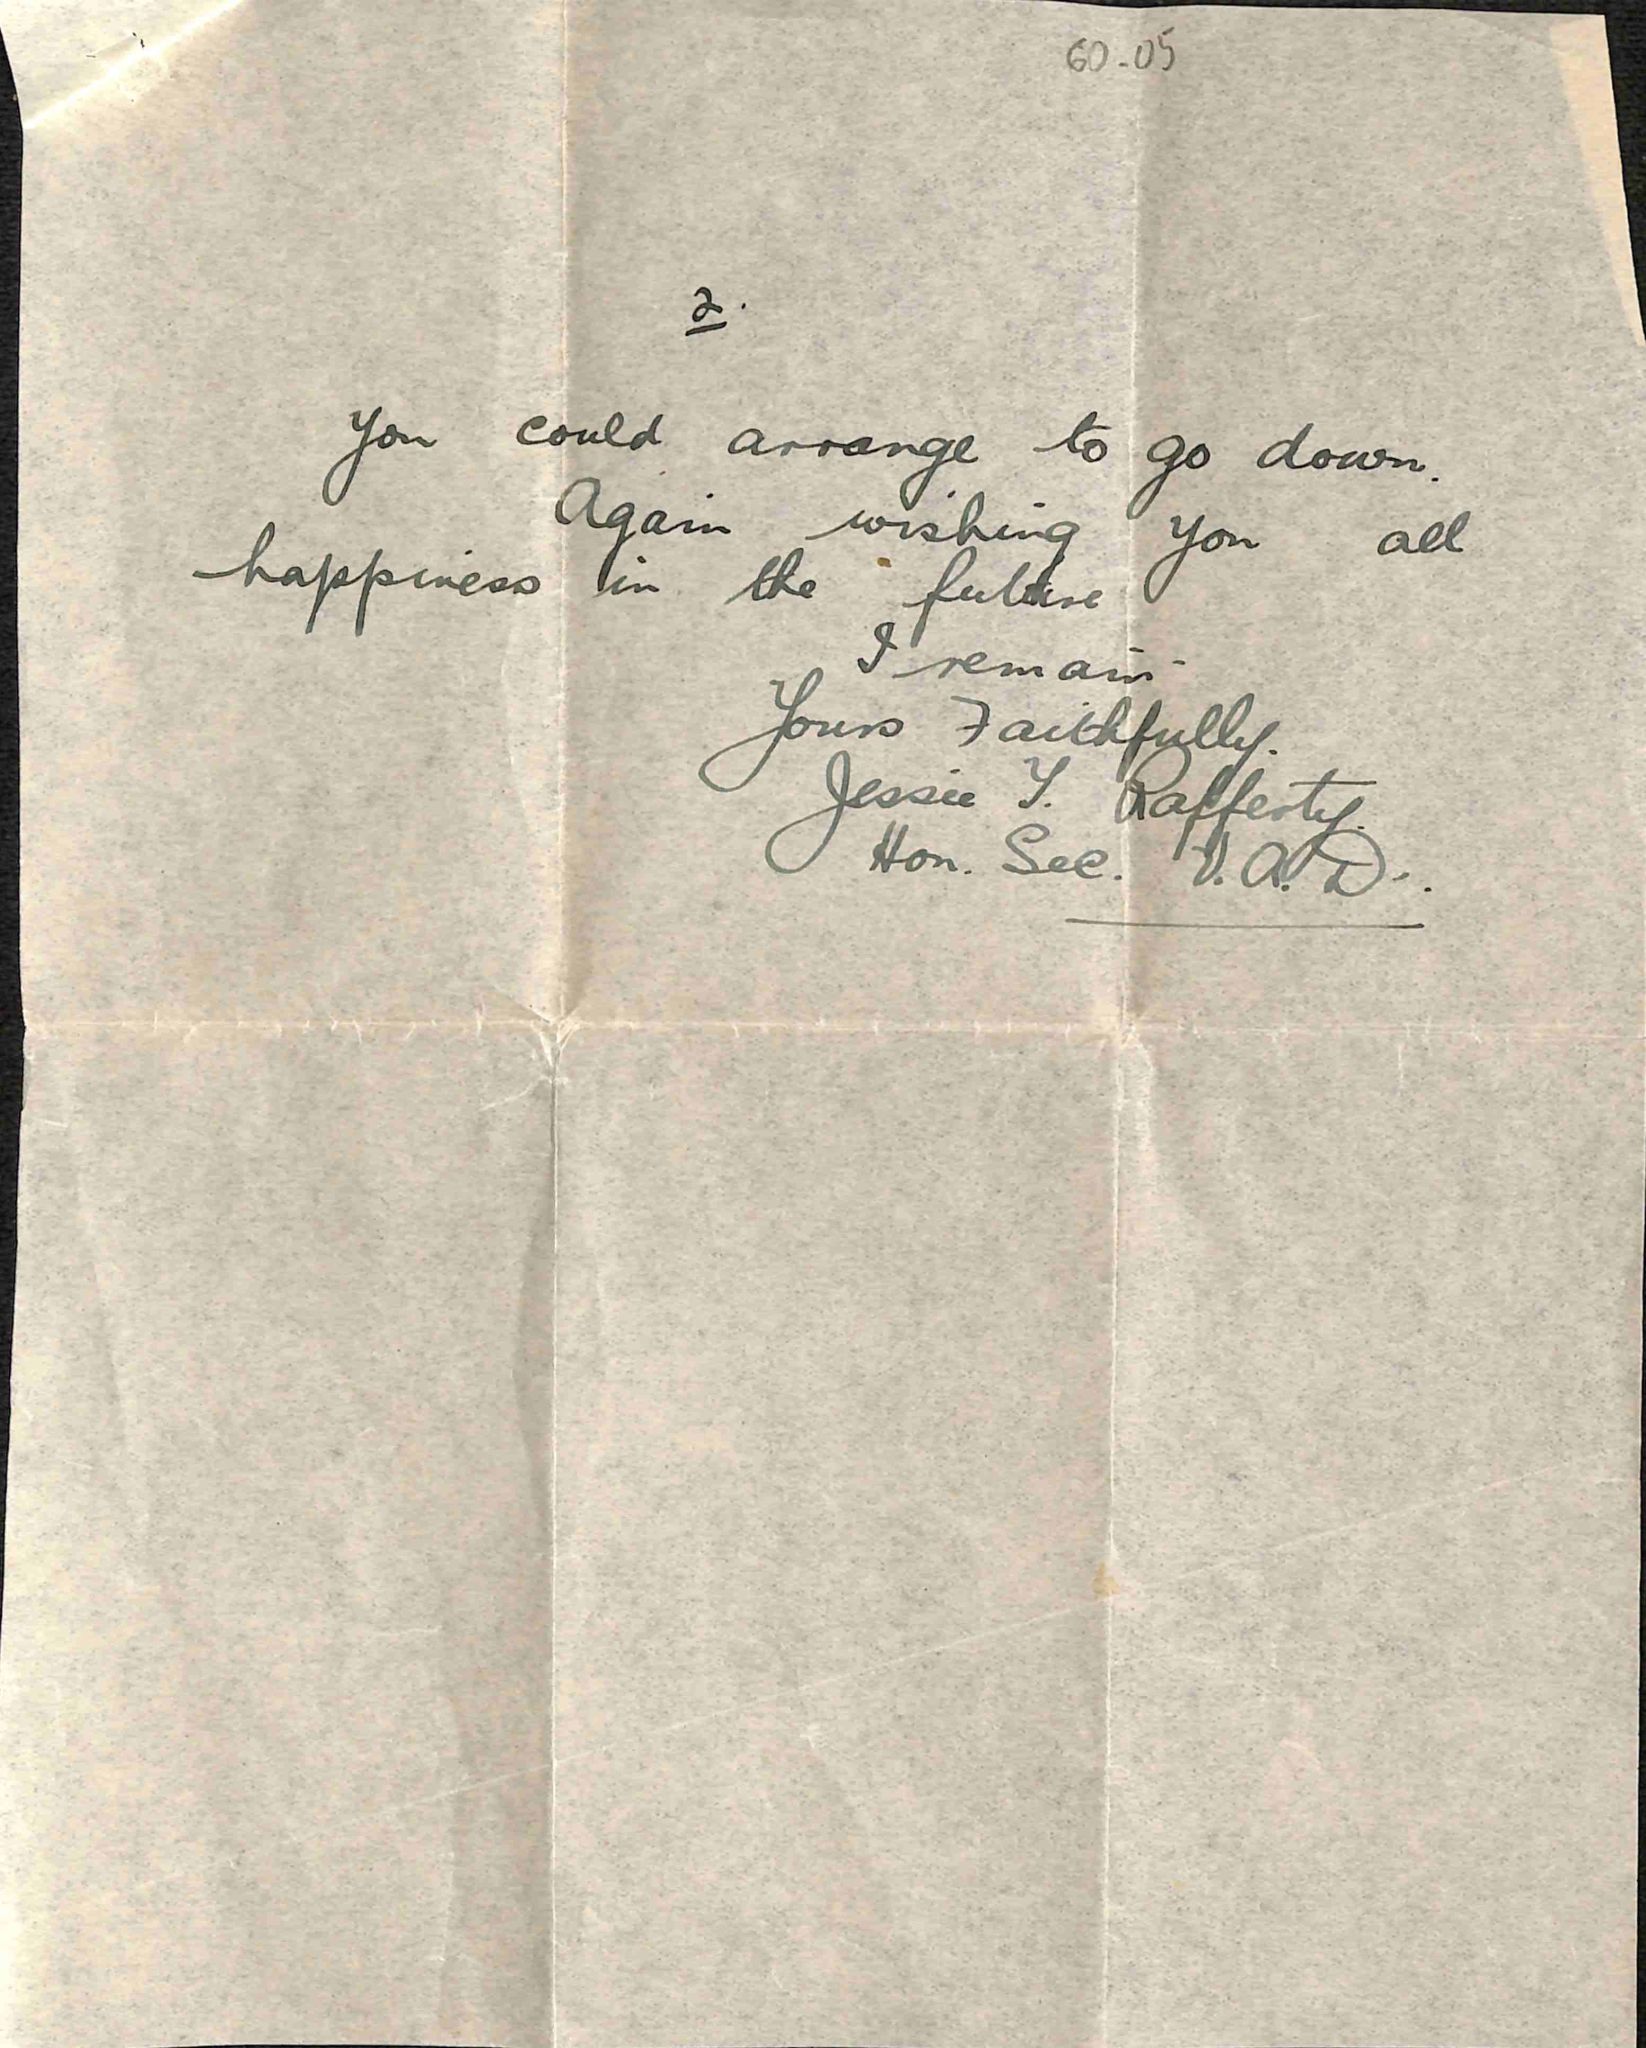 60-05
2.
you could arrange to go down.
Again wishing you all
happiness in the future
I remain
Yours Faithfully.
Jessie Y. Rafferty.
Hon. Sec. V.A.D.